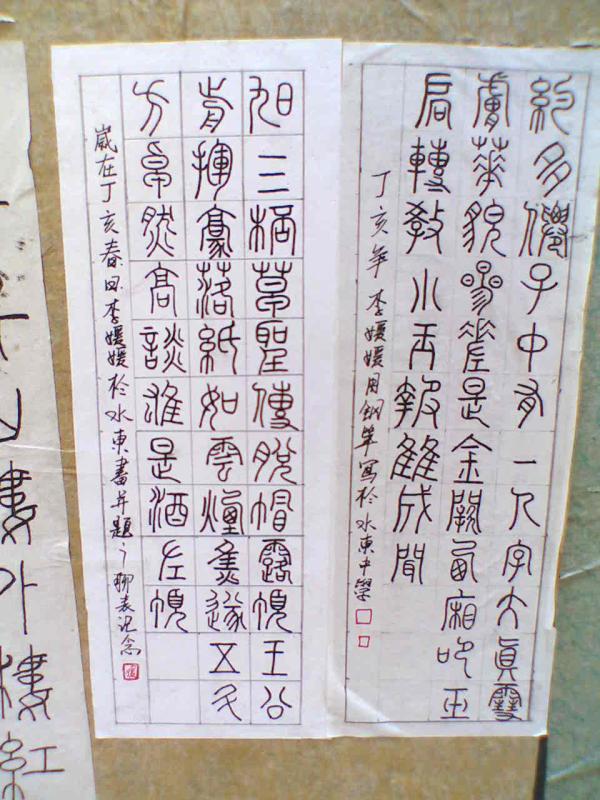 約多僊子中有一人字太真雪
膚華貌參差是金闕西廂叩玉
扃轉教小玉報雙成聞
丁亥年 李媛媛用鋼筆寫於水東中學
旭三桮草聖傳脫帽露頂王公
前揮毫落紙如雲煙焦遂五斗
方卓然高談雄是酒左頂
歲在丁亥春日李媛媛於水東書并題之聊表記念
樓外樓紅